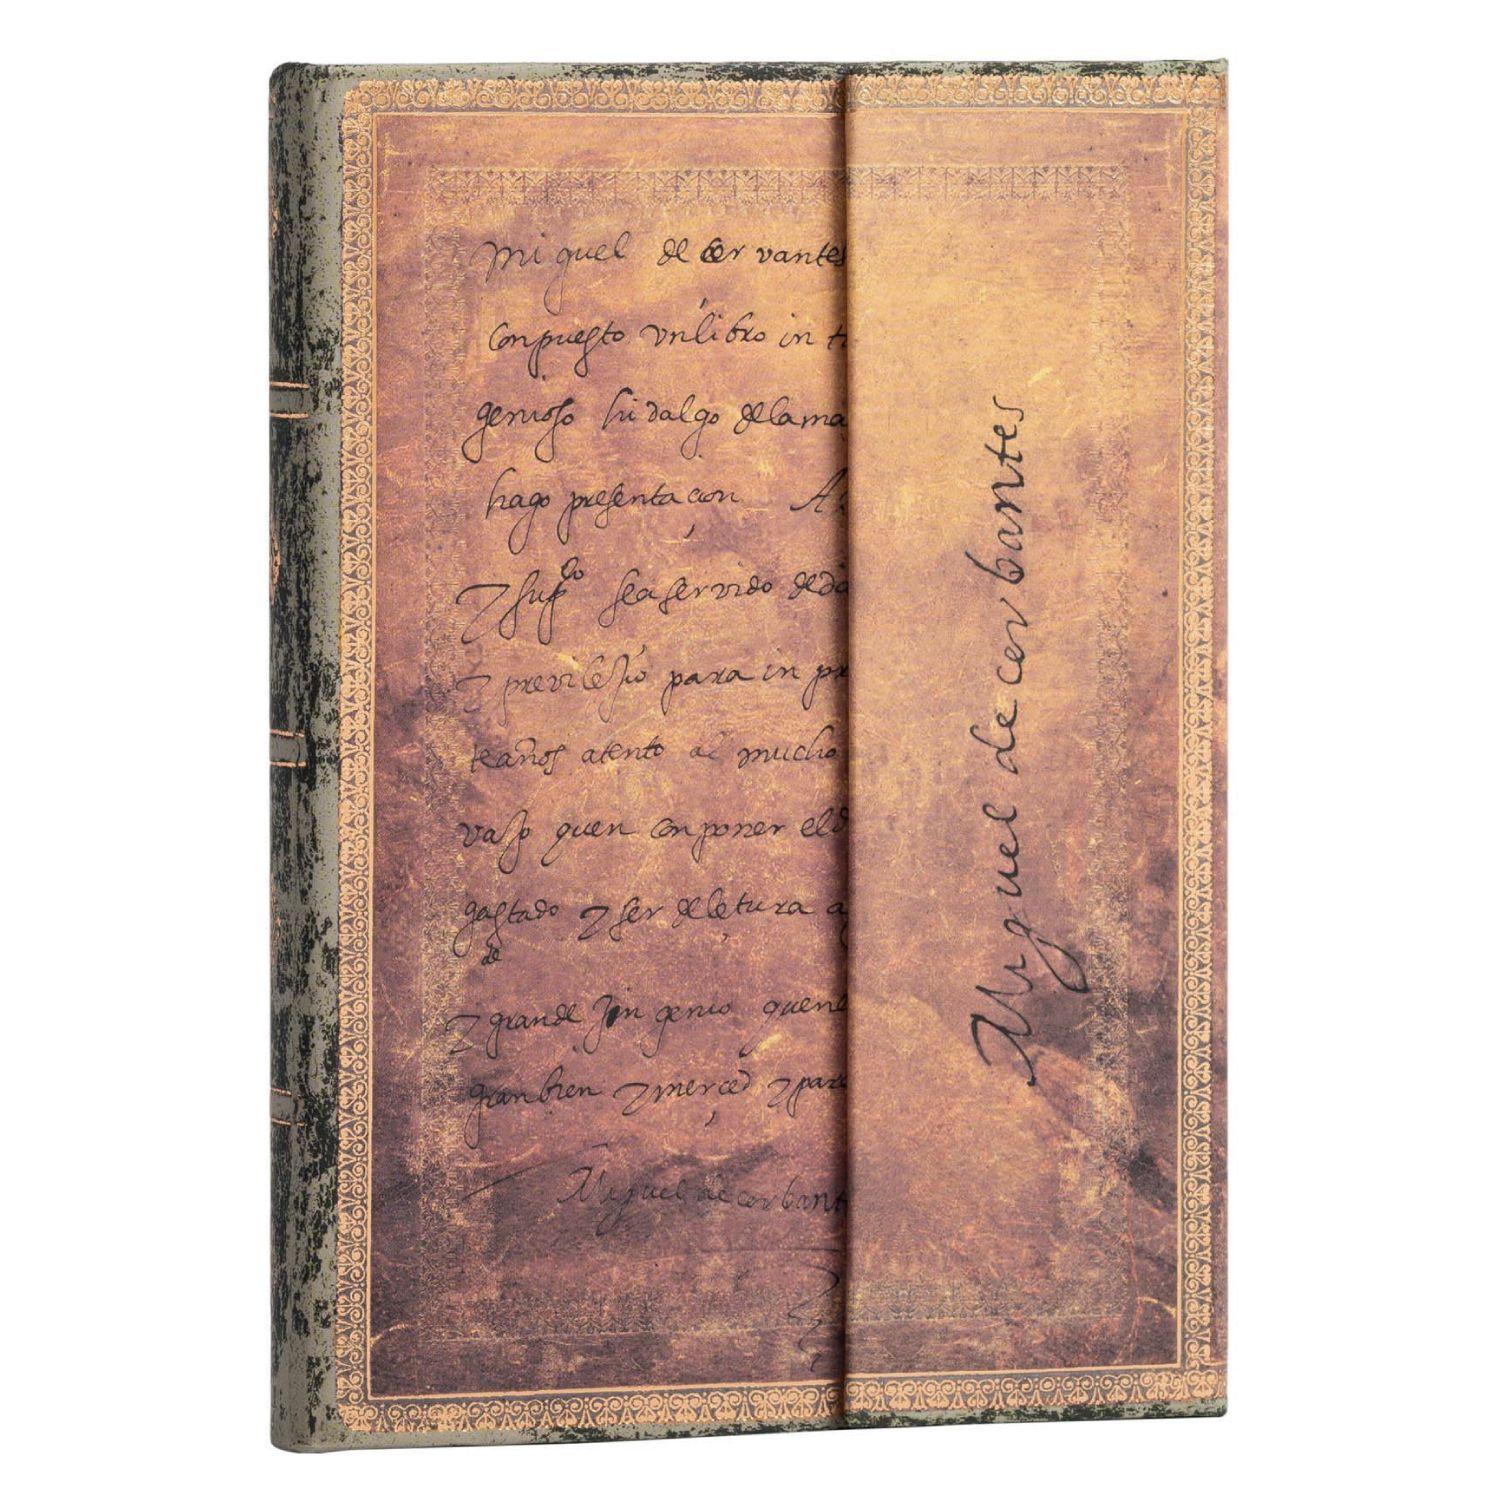 Miguel de cervantes
Conpuesto Unlibro in ti
genioso hidalgo delama
hago presentacion A
z supco seaservido deda
z previlesio para in pr
teaños atento al mucho
vajo quen conponer eld
gastado z ser deletura a
de
z grande Jin genio quene
granbien z merced z para
Miguel de cerbant
Miguel de cerbantes